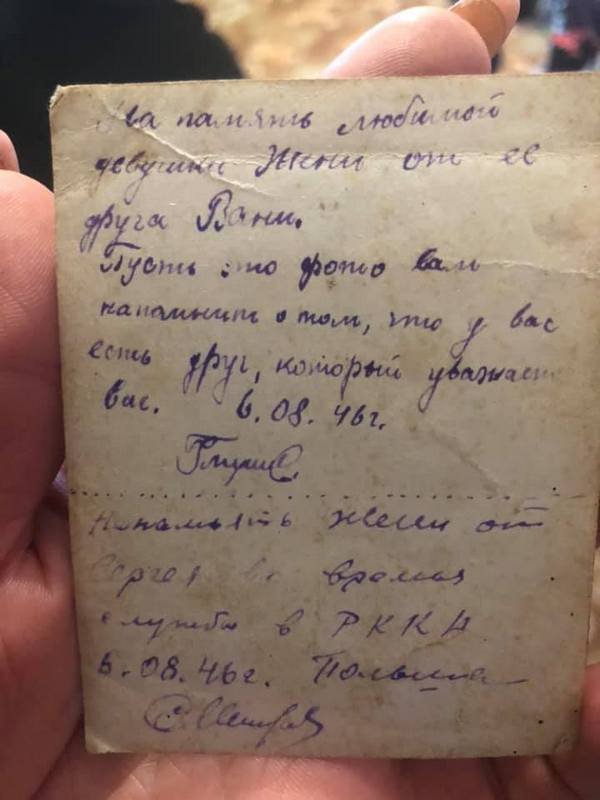 На память любимой
девушки Жени от ее
друга Вани.
Пусть это фото вам
напомнит о том, что у вас
есть друг, который уважает
вас. 6.08.46г.
На память Жени от
Сергея во время
службы в РККА
6.08.46г. Польша